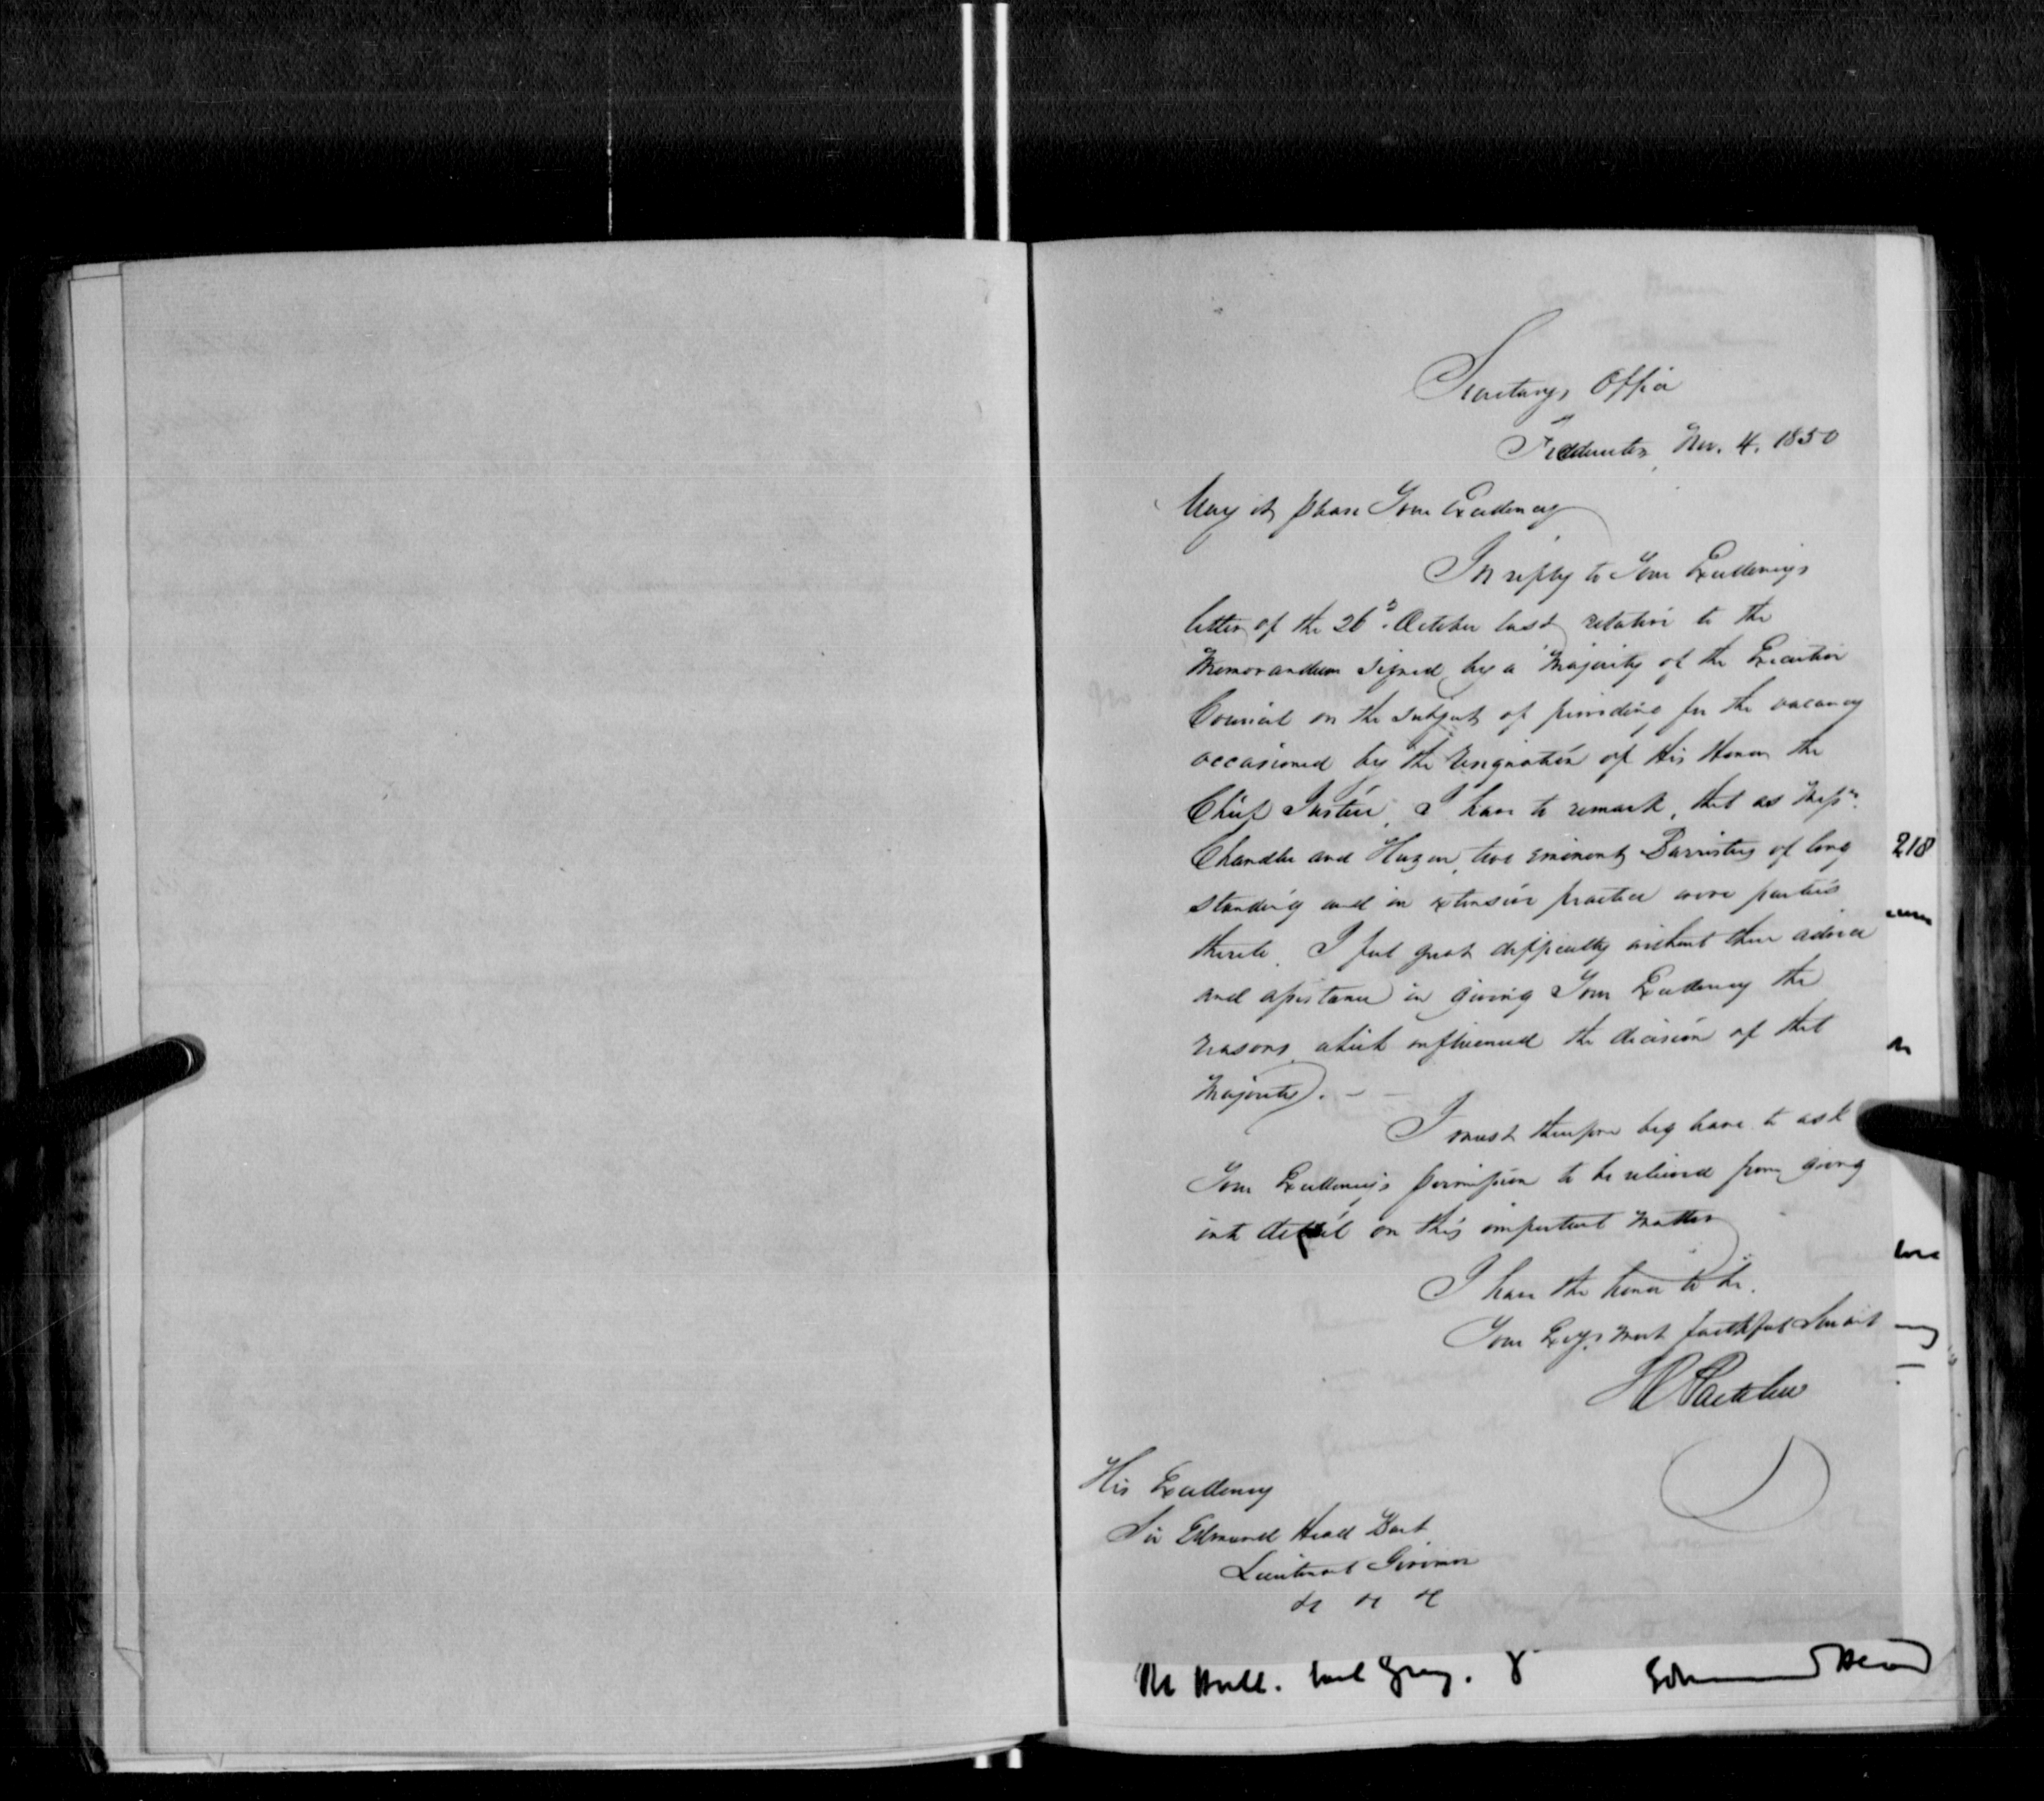 Secretary's Office
Fredericton, Nov. 4. 1850
May it please Your Excellency
In reply to Your Excellency's
letter of the 26th October last relative to the
Memorandum signed by a Majority of the Executive
Council on the subject of providing for the vacancy
occasioned by the resignation of His Honor the
Chief Justice, I have to remark, that as Messrs.
Chandler and Hazen, two eminent Barristers of long
standing and in extensive practice were parties
thereto, I feel great difficulty without their advice
and assistance in giving Your Excellency the
reasons which influenced the decision of that
Majority. — —
I must therefore beg leave to ask
Your Excellency's permission to be relieved from going
into detail on this important matter
I have the honor to be.
Your Excy's most faithful servant
JR Partelow
His Excellency
Sir Edmund Head Bart
Lieutenant Governor
&c &c &c
218
The Rt Honble. Earl Grey.
Edmund Head